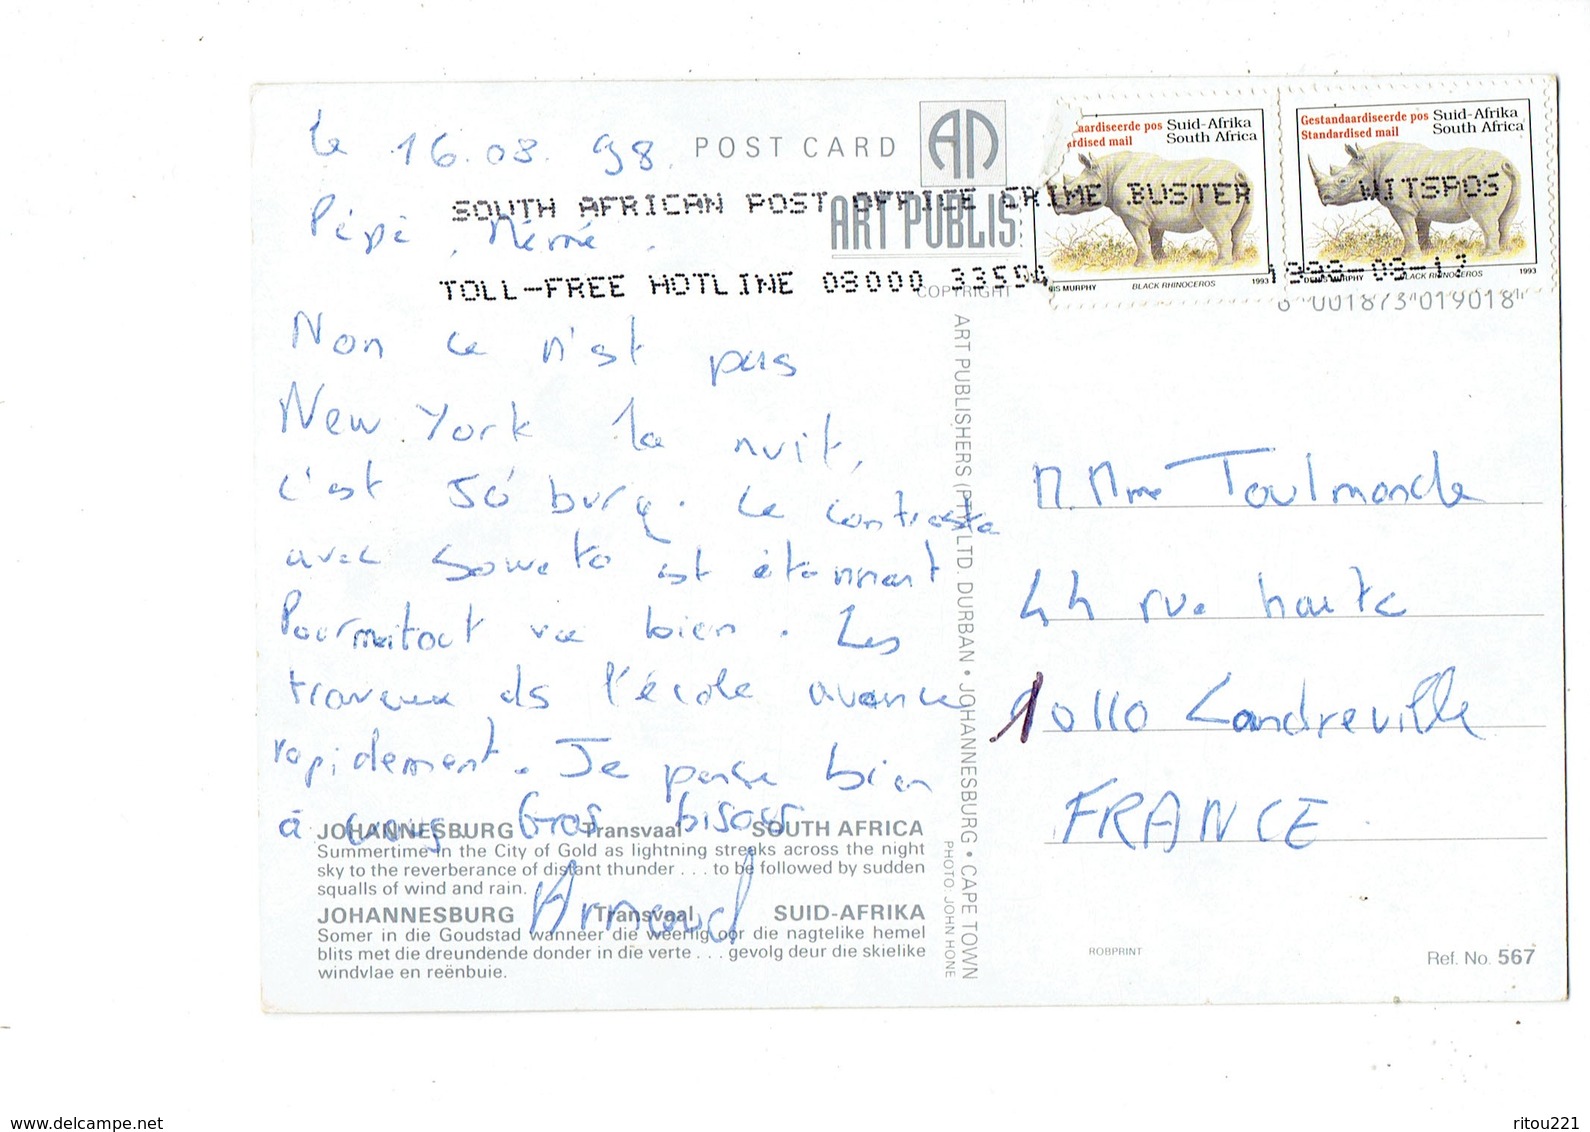 le 16.03.98.
Pépé, Mémé.
Non ce n'est pas
New York la nuit,
c'est Jo'burg. Le contraste
avec Soweto est étonnant
Pourmaitout va bien. Les
travaux ds l'école avance
rapidement. Je pense bien
à vous. Gros bisous
Arnaud
POST CARD
AN
ART PUBLIS
COPYRIGHT
SOUTH AFRICAN POST OFFICE CRIME BUSTER
TOLL-FREE HOTLINE 08000 33554
WITSPOS
aardiseerde pos Suid-Afrika
ardised mail South Africa
IS MURPHY BLACK RHINOCEROS 1993
Gestandaardiseerde pos Suid-Afrika
Standardised mail South Africa
DENIS MURPHY BLACK RHINOCEROS 1993
6 001873 019018
ART PUBLISHERS (PTY) LTD. DURBAN • JOHANNESBURG • CAPE TOWN
PHOTO: JOHN HONE
M. Mme Toulmonde
44 rue haute
10110 Landreville
FRANCE
JOHANNESBURG Transvaal SOUTH AFRICA
Summertime in the City of Gold as lightning streaks across the night
sky to the reverberance of distant thunder . . . to be followed by sudden
squalls of wind and rain.
JOHANNESBURG Transvaal SUID-AFRIKA
Somer in die Goudstad wanneer die weerlig oor die nagtelike hemel
blits met die dreundende donder in die verte . . . gevolg deur die skielike
windvlae en reënbuie.
ROBPRINT
Ref. No. 567
www.delcampe.net
ritou221